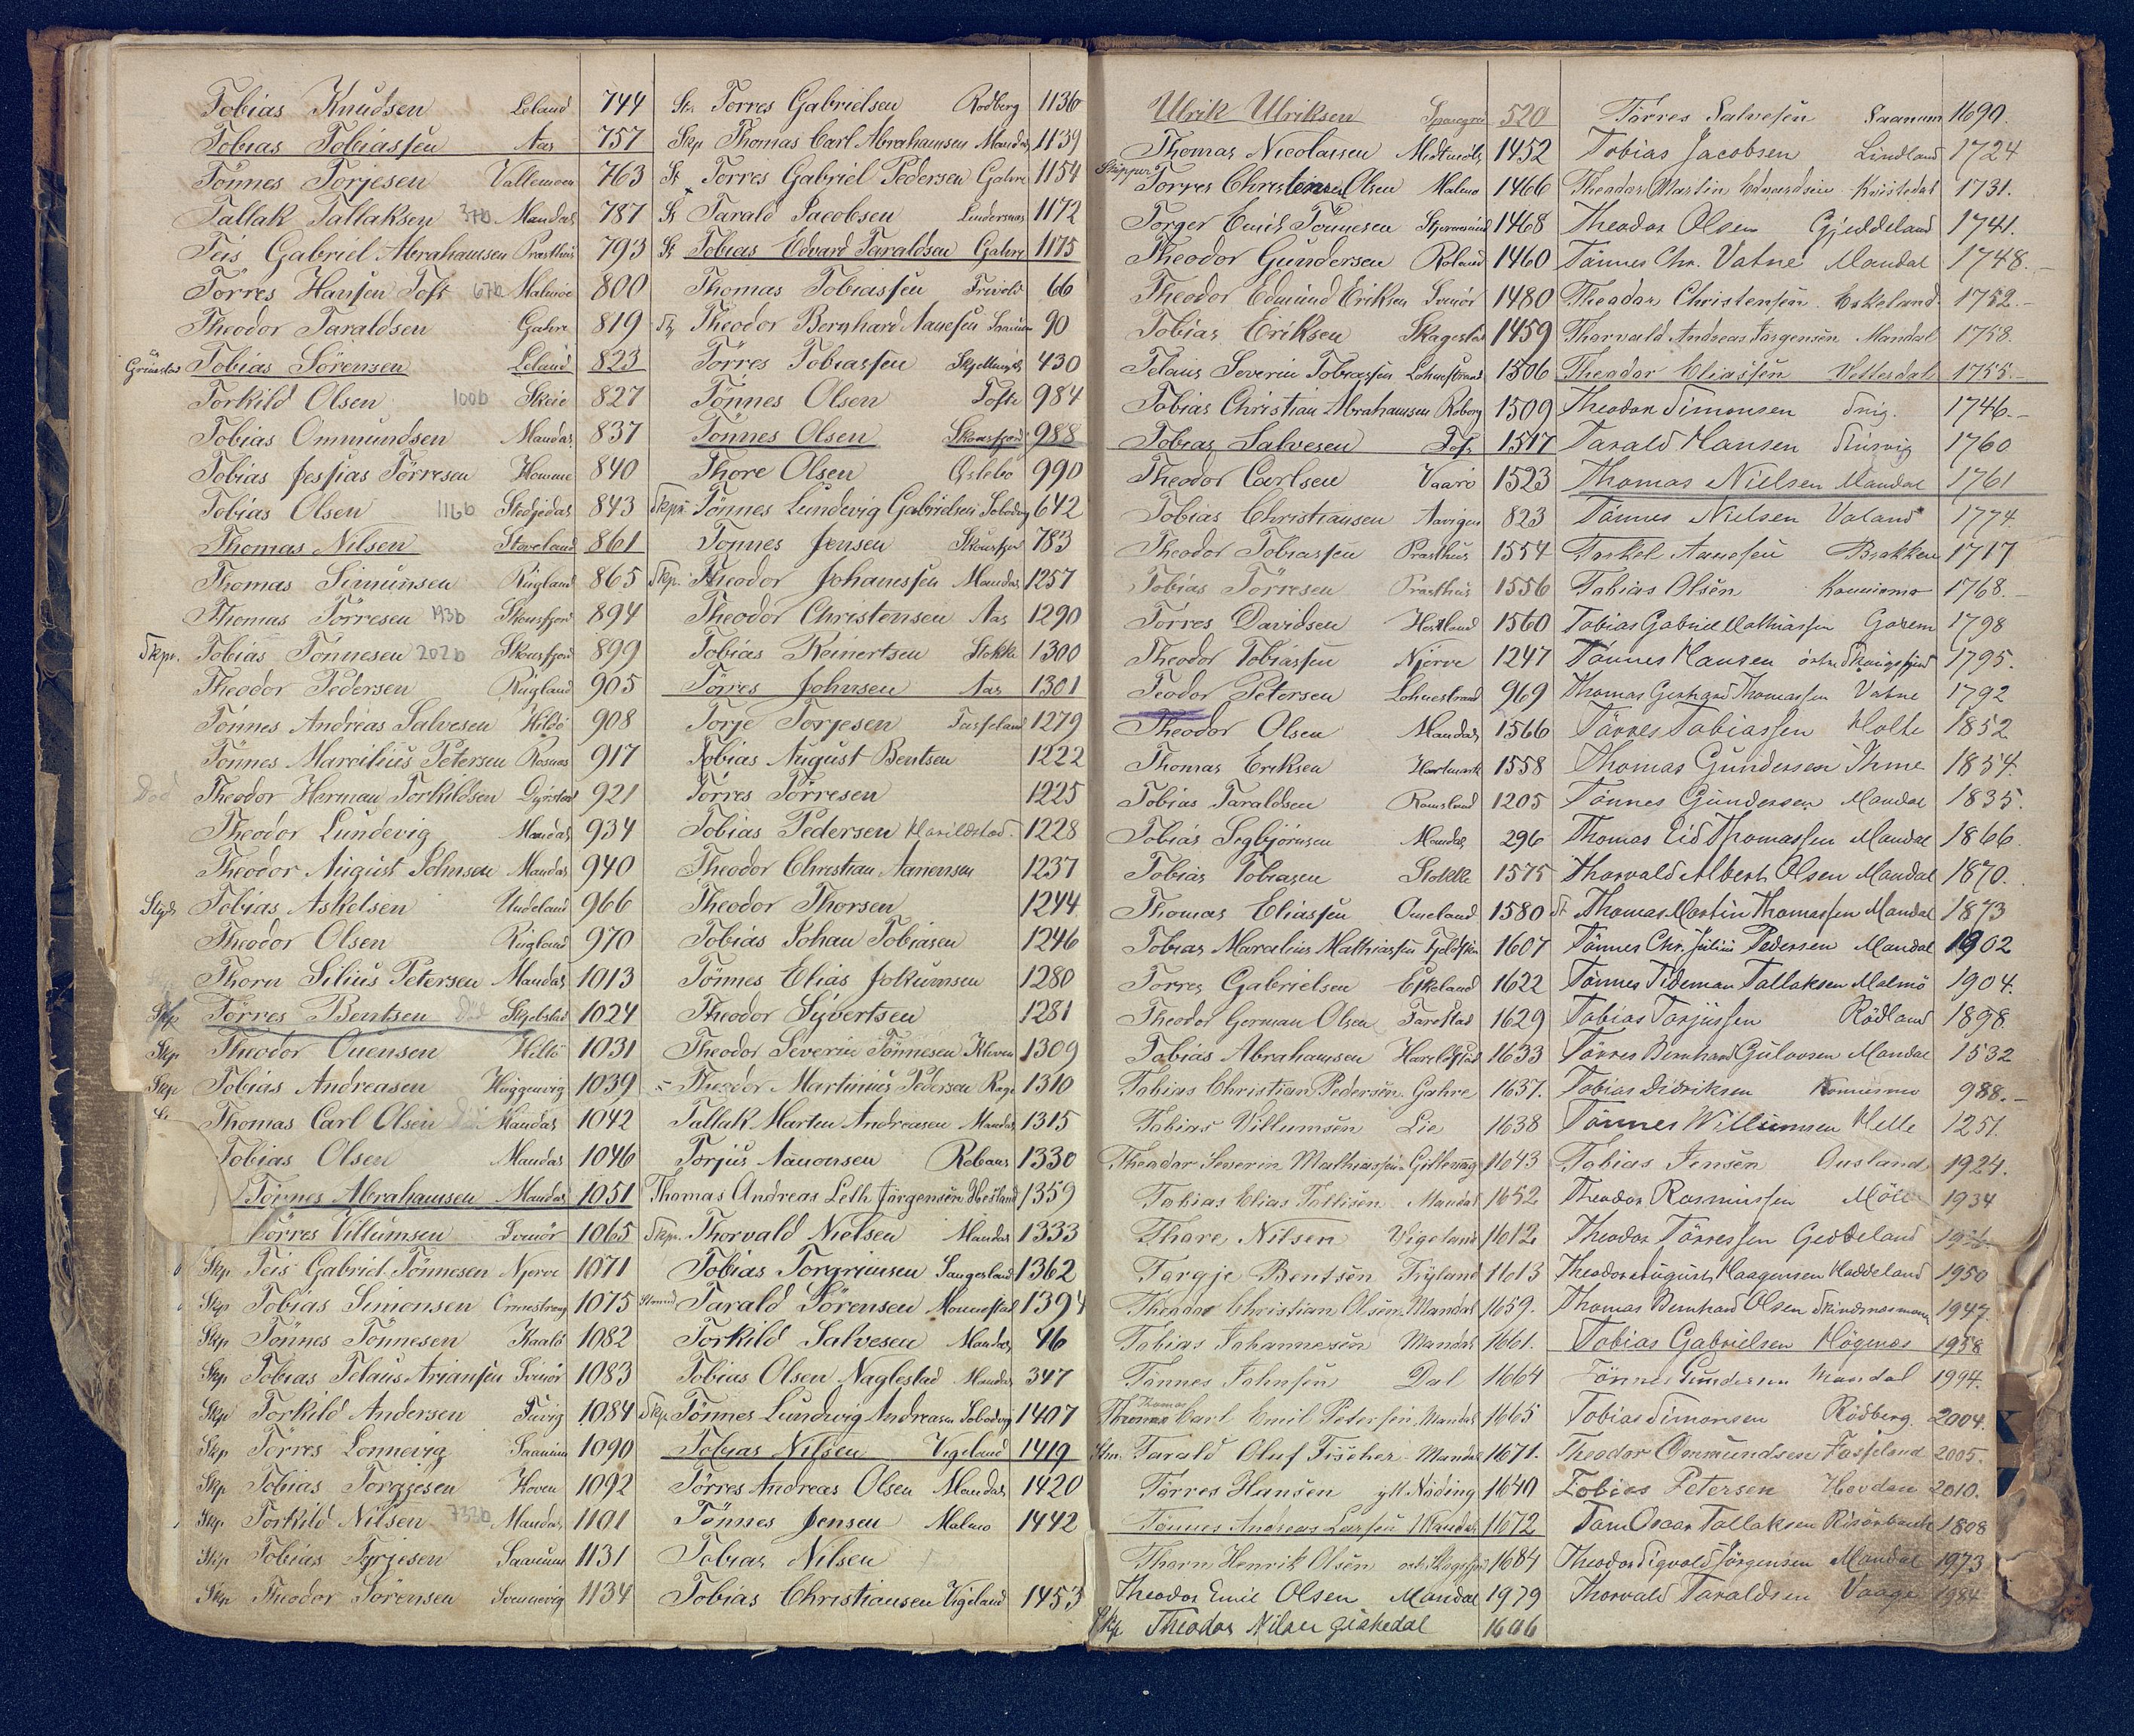 Tobias Knudsen Leland 744
Tobias Tobiassen Aas 757
Tönnes Torjesen Vallemoen 763
Tallak Tallaksen 37b Mandal 787
Teis Gabriel Abrahamsen Præsthus 793
Törres Hansen Toft 67b Malmöe 800
Theodor Taraldsen Gahre 819
Tobias Sörensen Leland 823
Torkild Olsen 100b Skeie 827
Tobias Ommundsen Mandal 837
Tobias Jessias Törresen Homme 840
Tobias Olsen 116b Stedjedal 843
Thomas Nilsen Stoveland 861
Thomas Simunsen Rügland 865
Thomas Törresen 193b Skonsfjord 894
Skpr. Tobias Tönnesen 202b Skonsfjord 899
Theodor Pedersen Rügland 905
Tönnes Andreas Salvesen Hildö 908
Tönnes Marcilius Petersen Rosnæs 917
Död Theodor Herman Torkildsen Dyrstad 921
Theodor Lundevig Mandal 934
Theodor August Johnsen Mandal 940
Tobias Askelsen Undeland 966
Theodor Olsen Rügland 970
Thorn Silius Petersen Mandal 1013
Skp Törres Bentsen Död Skjebstad 1024
Skp Theodor Ouensen Hillö 1031
Skp Tobias Andreasen Haggenvig 1039
Thomas Carl Olsen Mandal 1042
Tobias Olsen Mandal 1046
Tönnes Abrahamsen Mandal 1051
Törres Villumsen Svinör 1065
Skp Teis Gabriel Tönnesen Njerve 1071
Skp Tobias Simonsen 1075
Skp Tönnes Tönnesen 1082
Skp Tobias Telaus Ariansen Svinör 1083
Skp Torkild Andersen Tuvig 1084
Skp Törres Lonnevig Saanum 1090
Skp Tobias Torgjesen Hoven 1092
Skp Torkild Nilsen 732b Mandal 1101
Skp Tobias Tyrjesen Saanum 1131
Skp Theodor Sörensen Svennevig 1134
St. Torres Gabrielsen Rodberg 1136
Skp Thomas Carl Abrahamsen Mandal 1139
St Torres Gabriel Pedersen Gahre 1154
St Tarald Jacobsen Lindesnæs 1172
St Tobias Edvard Taraldsen Gahre 1175
Thomas Tobiassen 66
Theodor Bernhard Aanesen Saanum 90
Törres Tobiassen 430
Tönnes Olsen Tofte 984
Tönnes Olsen Skonsfjord 988
Thore Olsen Oslebö 990
Skpr Tönnes Lundevig Gabrielsen 642
Tonnes Jensen Skonsfjor 783
Skp. Theodor Johanessen Mandal 1257
Theodor Christensen Aas 1290
Tobias Reinertsen Stokke 1300
Törres Johnsen Aas 1301
Torje Torjesen Tasseland 1279
Tobias August Bentsen 1222
Törres Törresen 1225
Tobias Pedersen Harildstad 1228
Theodor Christian Aanensen 1237
Theodor Thorsen 1244
Tobias Johan Tobiasen 1246
Tönnes Elias Jokumsen 1280
Theodor Syvertsen 1281
Theodor Severin Tönnesen Kleven 1309
Theodor Martinius Pedersen Rage 1310
Tallak Marten Andreasen Mandal 1315
Torjus Aanonsen 1330
Thomas Andreas Leth Jörgensen Hesland 1359
Skpr. Thorvald Nielsen Mandal 1333
Tobias Torgrimsen Sangesland 1362
Tarald Sörensen Monnestad 1394
Torkild Salvesen Mandal 46
Tobias Olsen Naglestad Mandal 347
Skp. Tönnes Lundwig Andreasen 1407
Tobias Nilsen Vigeland 1419
Törres Andreas Olsen Mandal 1420
Tönnes Jensen Malmö 1442
Tobias Nilsen
Tobias Christiansen Vigeland 1453
Ulrik Ulriksen 520
Thomas Nicolaisen 1452
Skipper Torres Christensen Olsen Malmo 1466
Torger Emil Tönnesen 1468
Theodor Gundersen Roland 1460
Theodor Edmund Eriksen Svinör 1480
Tobias Eriksen Skagestad 1459
Telaus Severin Tobiassen Lohnestrand 1506
Tobias Christian Abrahamsen Roberg 1509
Tobias Salvesen Toft 1517
Theodor Carlsen Vaarö 1523
Tobias Christiansen 823
Theodor Tobiassen Præsthus 1554
Tobias Törresen Præsthus 1556
Törres Davidsen 1560
Theodor Tobiassen Njerve 1247
Teodor Petersen Lohnestrand 969
Theodor Olsen Mandal 1566
Thomas Eriksen Hartmark 1558
Tobias Taraldsen 1205
Tobias Sigbjörnsen Mandal 296
Tobias Tobiasen Stokke 1575
Thomas Eliassen Omeland 1580
Tobias Marcelius Mathiassen 1607
Torres Gabrielsen Eskeland 1622
Theodor German Olsen Farestad 1629
Tobias Abrahamsen 1633
Tobias Christian Pedersen Gahre 1637.
Tobias Villumsen Lie 1638
Theodor Severin Mathiassen 1643
Tobias Elias Mandal 1652
Thore Nilsen Vigeland 1612
Torgje Bentsen Fryland 1613
Theodor Christian Olsen Mandal 1659.
Tobias Johannesen Mandal 1661.
Tönnes Johnsen Dal 1664
Thomas Carl Emil Petersen Mandal 1665
Stm. Tarald Oluf Fischer Mandal 1671.
Törres Hansen ytt Nöding 1640
Tönnes Andreas Larsen Mandal 1672
Thorn Henrik Olsen 1684
Theodor Emil Olsen Mandal 1979
Skp Theodor Nilsen Giskedal 1606
Törres Salvesen Saanum 1690.
Tobias Jacobsen Lindland 1724
Theodor Martin Edvardsen 1731.
Theodor Olsen Gjeddeland 1741.
Tönnes Chr. Vatne Mandal 1748.
Theodor Christensen Eskeland 1752.
Thorvald Andreas Jörgensen Mandal 1758.
Theodor Eliassen Vettesdal 1755.
Theodor Simonsen Snig. 1746.
Tarald Hansen 1760
Thomas Nielsen Mandal 1761
Tönnes Nielsen Valand 1774
Torkel Aanesen Brakken 1717
Tobias Olsen 1768.
Tobias Gabriel Mathiassen 1798
Tönnes Hansen 1795.
Thomas Gerhard Thomassen Vatne 1792
Törres Tobiassen Holte 1852
Thomas Gundersen Ihme 1854.
Tönnes Gundersen Mandal 1835.
Thomas Eid Thomassen Mandal 1866
Thorvald Albert Olsen Mandal 1870.
St Thomas Martin Thomassen Mandal 1873
Tönnes Chr. Julius Pedersen Mandal 1902
Tönnes Tideman Tallaksen Malmö 1904.
Tobias Torjussen Rödland 1898
Törres Bernhard Gulovsen Mandal 1532
Tobias Didriksen 988.
Tönnes Willumsen Helle 1251.
Tobias Jensen Ousland 1924.
Theodor Rasmussen 1934
Theodor Törressen Geddeland
Theodor August Haagensen Haddeland 1950
Thomas Bernhard Olsen 1947.
Tobias Gabrielsen Högenæs 1958
Tönnes Gundersen Mandal 1994.
Tobias Simonsen Rödberg. 2004.
Theodor Ommundsen Fasseland 2005.
Tobias Petersen Hovden 2010.
Tom Oscar Tallaksen Risörbank 1808
Theodor Sigvald Jörgensen Mandal 1973
Thorvald Taraldsen Vaage 1984